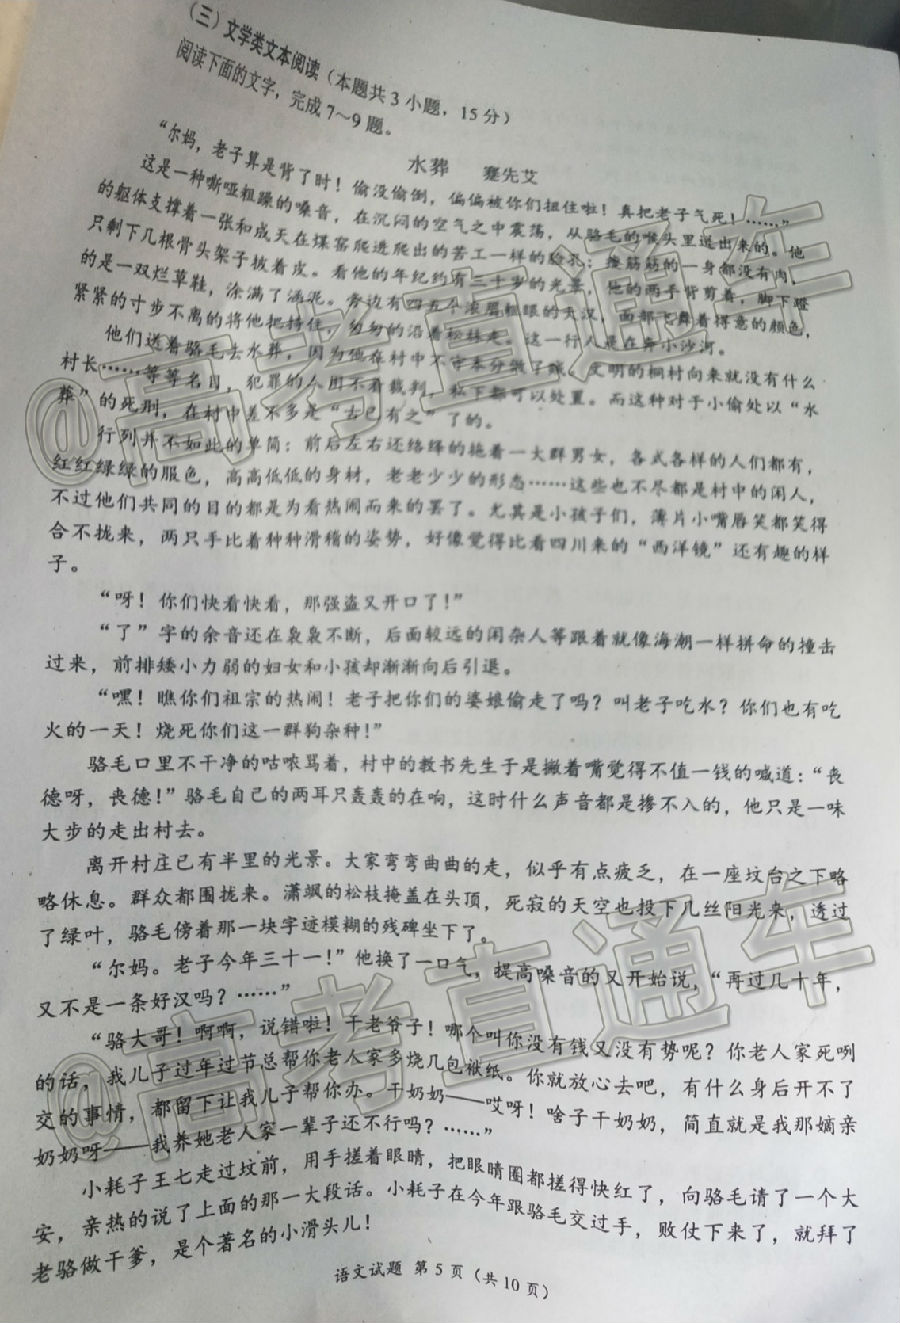 （三）文学类文本阅读（本题共3小题，15分）
阅读下面的文字，完成7～9题。
水葬 蹇先艾
“尔妈，老子算是背了时！偷没偷倒，偏偏被你们扭住啦！真把老子气死！……”
这是一种嘶哑粗躁的嗓音，在沉闷的空气之中震荡，从骆毛的喉头里迸出来的。他
的躯体支撑着一张和成天在煤窑爬进爬出的苦工一样的脸孔；瘦筋筋的一身都没有肉，
只剩下几根骨头架子披着皮。看他的年纪约有三十岁的光景，他的两手背剪着，脚下蹬
的是一双烂草鞋，涂满了涵泥。旁边有四五个浓眉粗眼的大汉，面部飞舞着得意的颜色，
紧紧的寸步不离的将他把持住，匆匆的沿着松林走。这一行人是在奔小沙河。
他们送着骆毛去水葬，因为他在村中不守本分做了贼。文明的桐村向来就没有什么
村长……等等名目，犯罪的人用不着裁判，私下都可以处置。而这种对于小偷处以“水
葬”的死刑，在村中差不多是“古已有之”了的。
行列并不如此的单简：前后左右还络绎的拖着一大群男女，各式各样的人们都有，
红红绿绿的服色，高高低低的身材，老老少少的形态……这些也不尽都是村中的闲人，
不过他们共同的目的都是为看热闹而来的罢了。尤其是小孩子们，薄片小嘴唇笑都笑得
合不拢来，两只手比着种种滑稽的姿势，好像觉得比看四川来的“西洋镜”还有趣的样
子。
“呀！你们快看快看，那强盗又开口了！”
“了”字的余音还在袅袅不断，后面较远的闲杂人等跟着就像海潮一样拼命的撞击
过来，前排矮小力弱的妇女和小孩却渐渐向后引退。
“嘿！瞧你们祖宗的热闹！老子把你们的婆娘偷走了吗？叫老子吃水？你们也有吃
火的一天！烧死你们这一群狗杂种！”
骆毛口里不干净的咕哝骂着，村中的教书先生于是撇着嘴觉得不值一钱的喊道：“丧
德呀，丧德！”骆毛自己的两耳只轰轰的在响，这时什么声音都是掺不入的，他只是一味
大步的走出村去。
离开村庄已有半里的光景。大家弯弯曲曲的走，似乎有点疲乏，在一座坟台之下略
略休息。群众都围拢来。潇飒的松枝掩盖在头顶，死寂的天空也投下几丝阳光来，透过
了绿叶，骆毛傍着那一块字迹模糊的残碑坐下了。
“尔妈。老子今年三十一！”他换了一口气，提高嗓音的又开始说，“再过几十年，
又不是一条好汉吗？……”
“骆大哥！啊啊，说错啦！干老爷子！哪个叫你没有钱又没有势呢？你老人家死咧
的话，我儿子过年过节总帮你老人家多烧几包袱纸。你就放心去吧，有什么身后开不了
交的事情，都留下让我儿子帮你办。干奶奶——哎呀！啥子干奶奶，简直就是我那嫡亲
奶奶呀——我养她老人家一辈子还不行吗？……”
小耗子王七走过坟前，用手搓着眼睛，把眼睛圈都搓得快红了，向骆毛请了一个大
安，亲热的说了上面的那一大段话。小耗子在今年跟骆毛交过手，败仗下来了，就拜了
老骆做干爹，是个著名的小滑头儿！
语文试题 第5页（共10页）
@高考直通车
@高考直通车